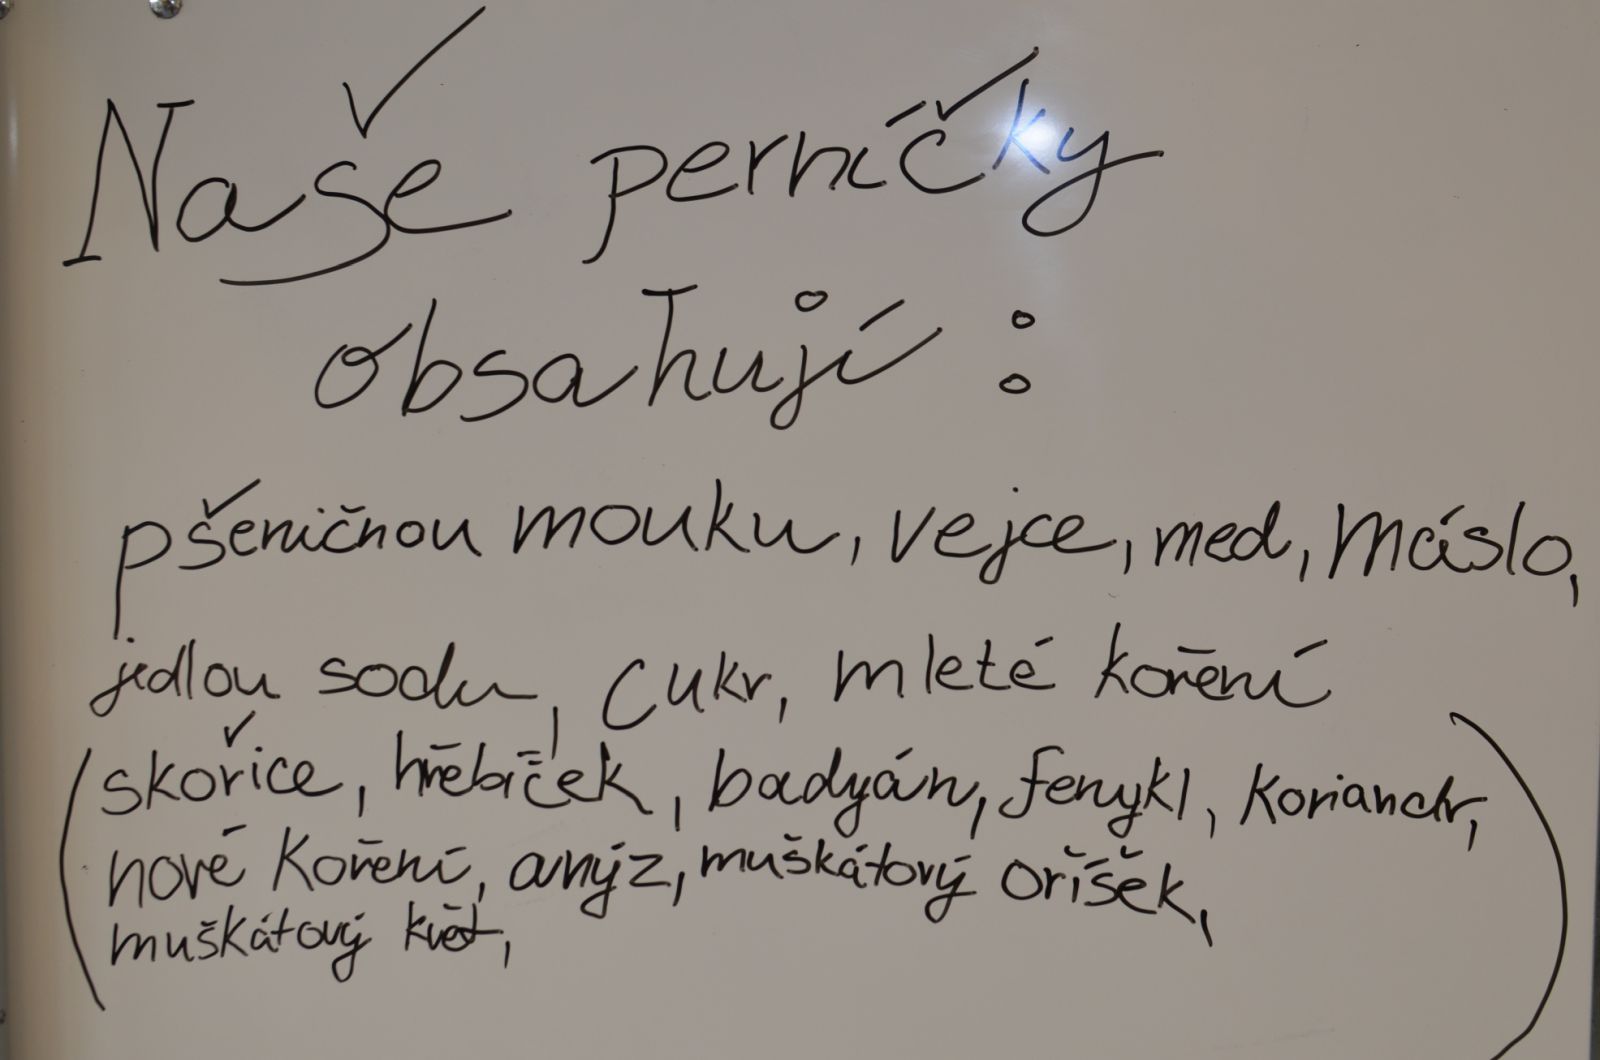 Naše perníčky
obsahují :
pšeničnou mouku, vejce, med, máslo,
jedlou sodu, cukr, mleté koření
(skořice, hřebíček, badyán, fenykl, koriandr,
nové koření, anýz, muškátový oříšek,
muškátový květ, )